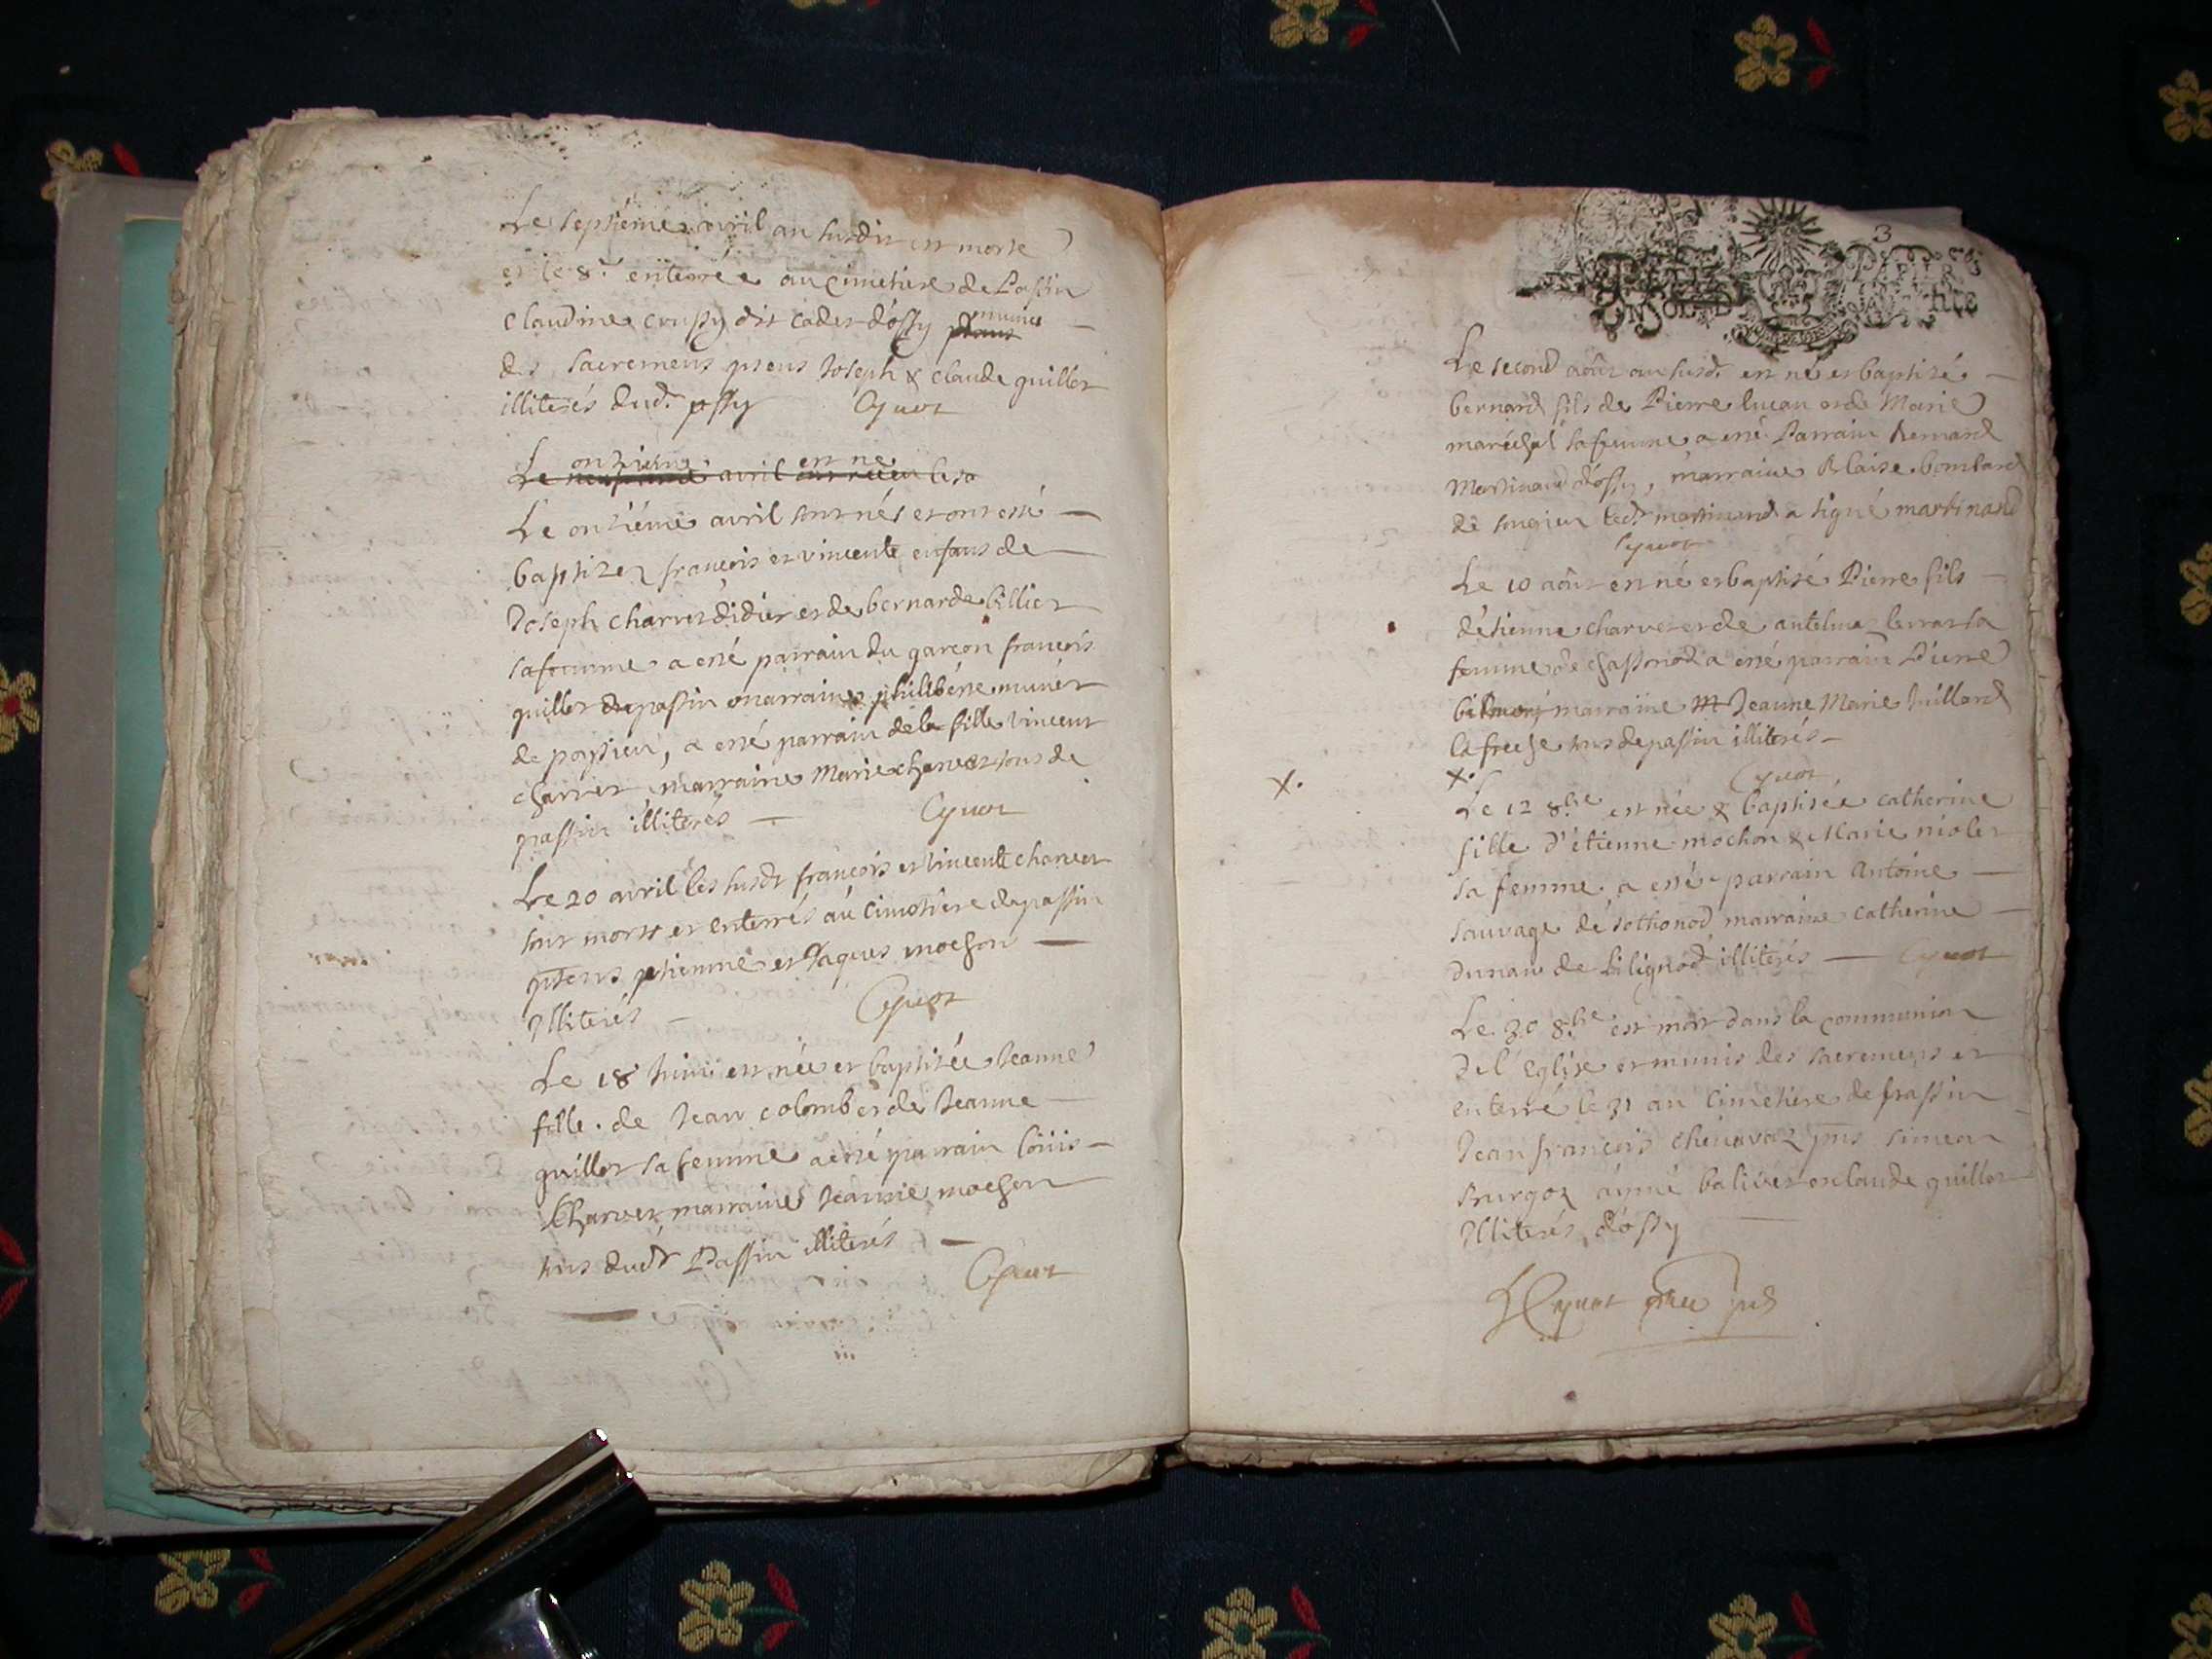 Le septiéme avril an susdit est morte
et le 8.e enterrée au cimetiere de Passin
Claudine crussy dit cadet d'ossy munie
des sacremens pñens Joseph & claude guillot
illiterés dud. ossy Cyvot
Le onziéme avril est né
Le onziéme avril sont nés et ont esté
baptisez françois et vincente enfans de
Joseph charvet didier et de bernarde billiet
sa femme a esté parrain du garçon françois
guillot de passin marraine philiberte munét
de poysieu, a esté parrain de la fille vincent
charvet marraine Marie charvet tous de
passin illiterés Cyvot
Le 20 avril les susdt françois et vincente charvet
sont morts et enterrés au cimetiere de passin
pñens etienne et Jaques mochon
Illiterés Cyvot
Le 18 Juin est née et baptisée Jeanne
fille de Jean colomb et de Jeanne
guillot sa femme a esté parrain loüis
Charvet marraine Jeanne mochon
tous dudt Passin illiterés
Cyvot
3
Le second août an susd. est né et baptisé
bernard fils de Pierre lucan et de Marie
maréchal sa femme a esté Parrain Bernard
Martinand d'ossy, marraine Blaise bombard
de songieu led. martinand a signé martinand
Cyvot
Le 10 août est né et baptisé Pierre fils
d'étienne charvet et de antelme
femme de chassonod a esté parrain Pierre
marraine Jeanne Marie Juillard
tous de passin illiterés
x. x. Cyvot
Le 12 8.bre est née & baptisée catherine
fille d'étienne mochon & Marie niolet
sa femme a esté parrain Antoine
sauvage de sothonod marraine catherine
dunan de bilignod illiterés Cyvot
Le 30 8.bre est mort dans la communion
de l'église et munis des sacremens et
enterré le 31 au cimetiere de passin
Jean françois chenavaz pñs simeon
burgoz aymé balivet et claude guillot
Illiterés d'ossy
Cyvot